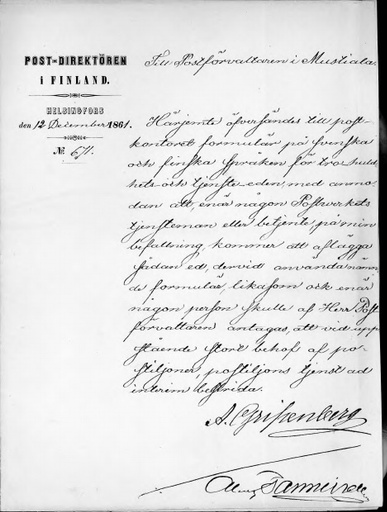 POST-DIREKTÖREN
i FINLAND.
HELSINGFORS
den 12 December 1861.
№ 671.
Till Postförvaltaren i Mustiala.
Härjemte öfversändes till post-
kontoret formulär på Svenska
och finska Språken för tro, huld-
hets-och tjenste-eden, med anmo-
dan att, enär någon Postverkets
tjensteman eller betjente, på min
befallning, kommer att aflägga
sådan ed, dervid använda nämn-
de formulär, likasom ock enär
någon person skulle af Herr Post-
förvaltaren antagas, att vid upp-
stående stort behof af po-
stiljoner, postiljons tjenst ad
interim bestrida.
A. Gripenberg